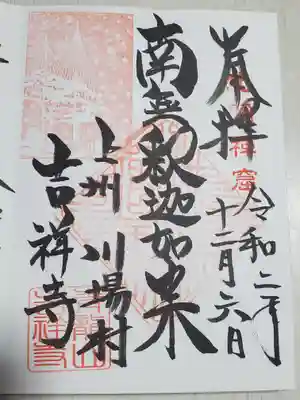 奉拝
令和二年
十二月六日
南無釈迦如来
上州 川場村
吉祥寺